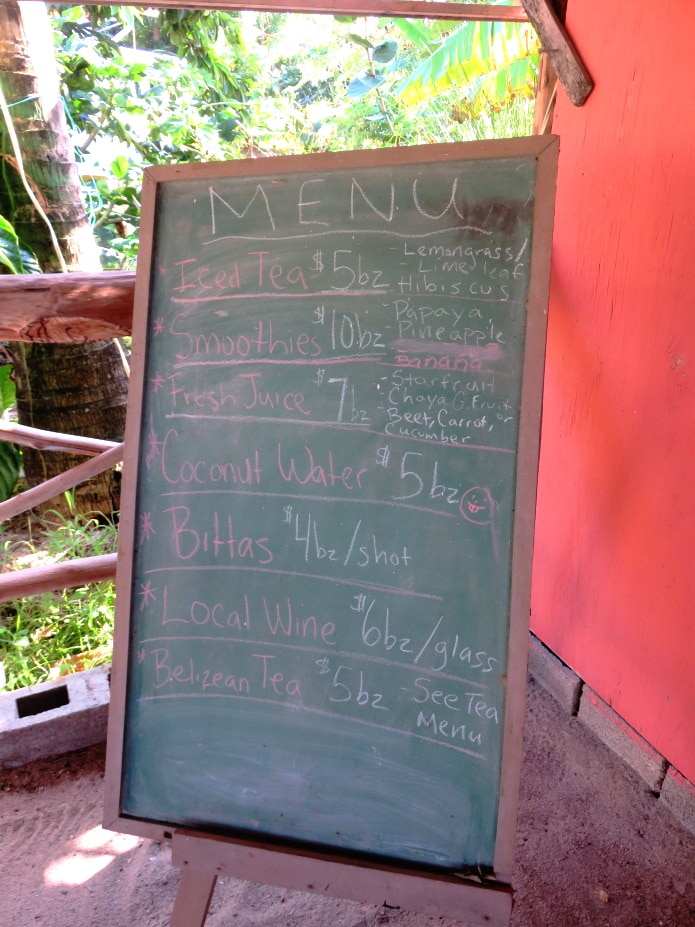 MENU
* Iced Tea $5bz - Lemongrass/
- Lime leaf
- Hibiscus
* Smoothies $10.bz - Papaya
- Pineapple
Banana
* Fresh Juice $7bz - Starfruit
- Chaya G.Fruit
- Beet, Carrot, or
Cucumber
* Coconut Water $5bz
* Bittas $4bz/shot
* Local Wine $6bz/glass
* Belizean Tea $5bz - See Tea
Menu